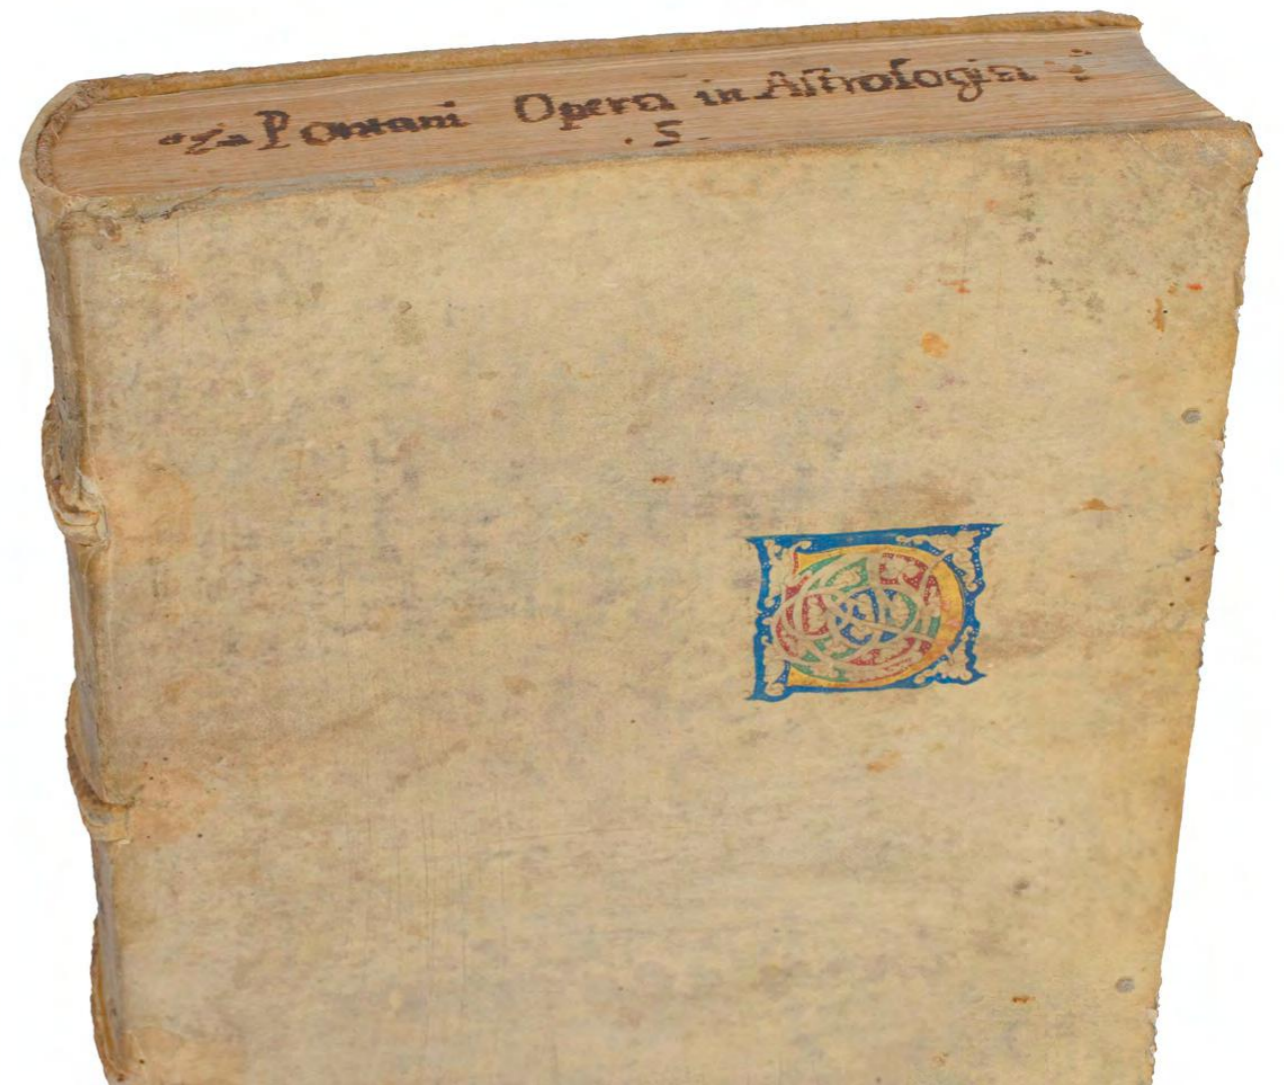 Pontani Opera in Astrologia
.5.
D